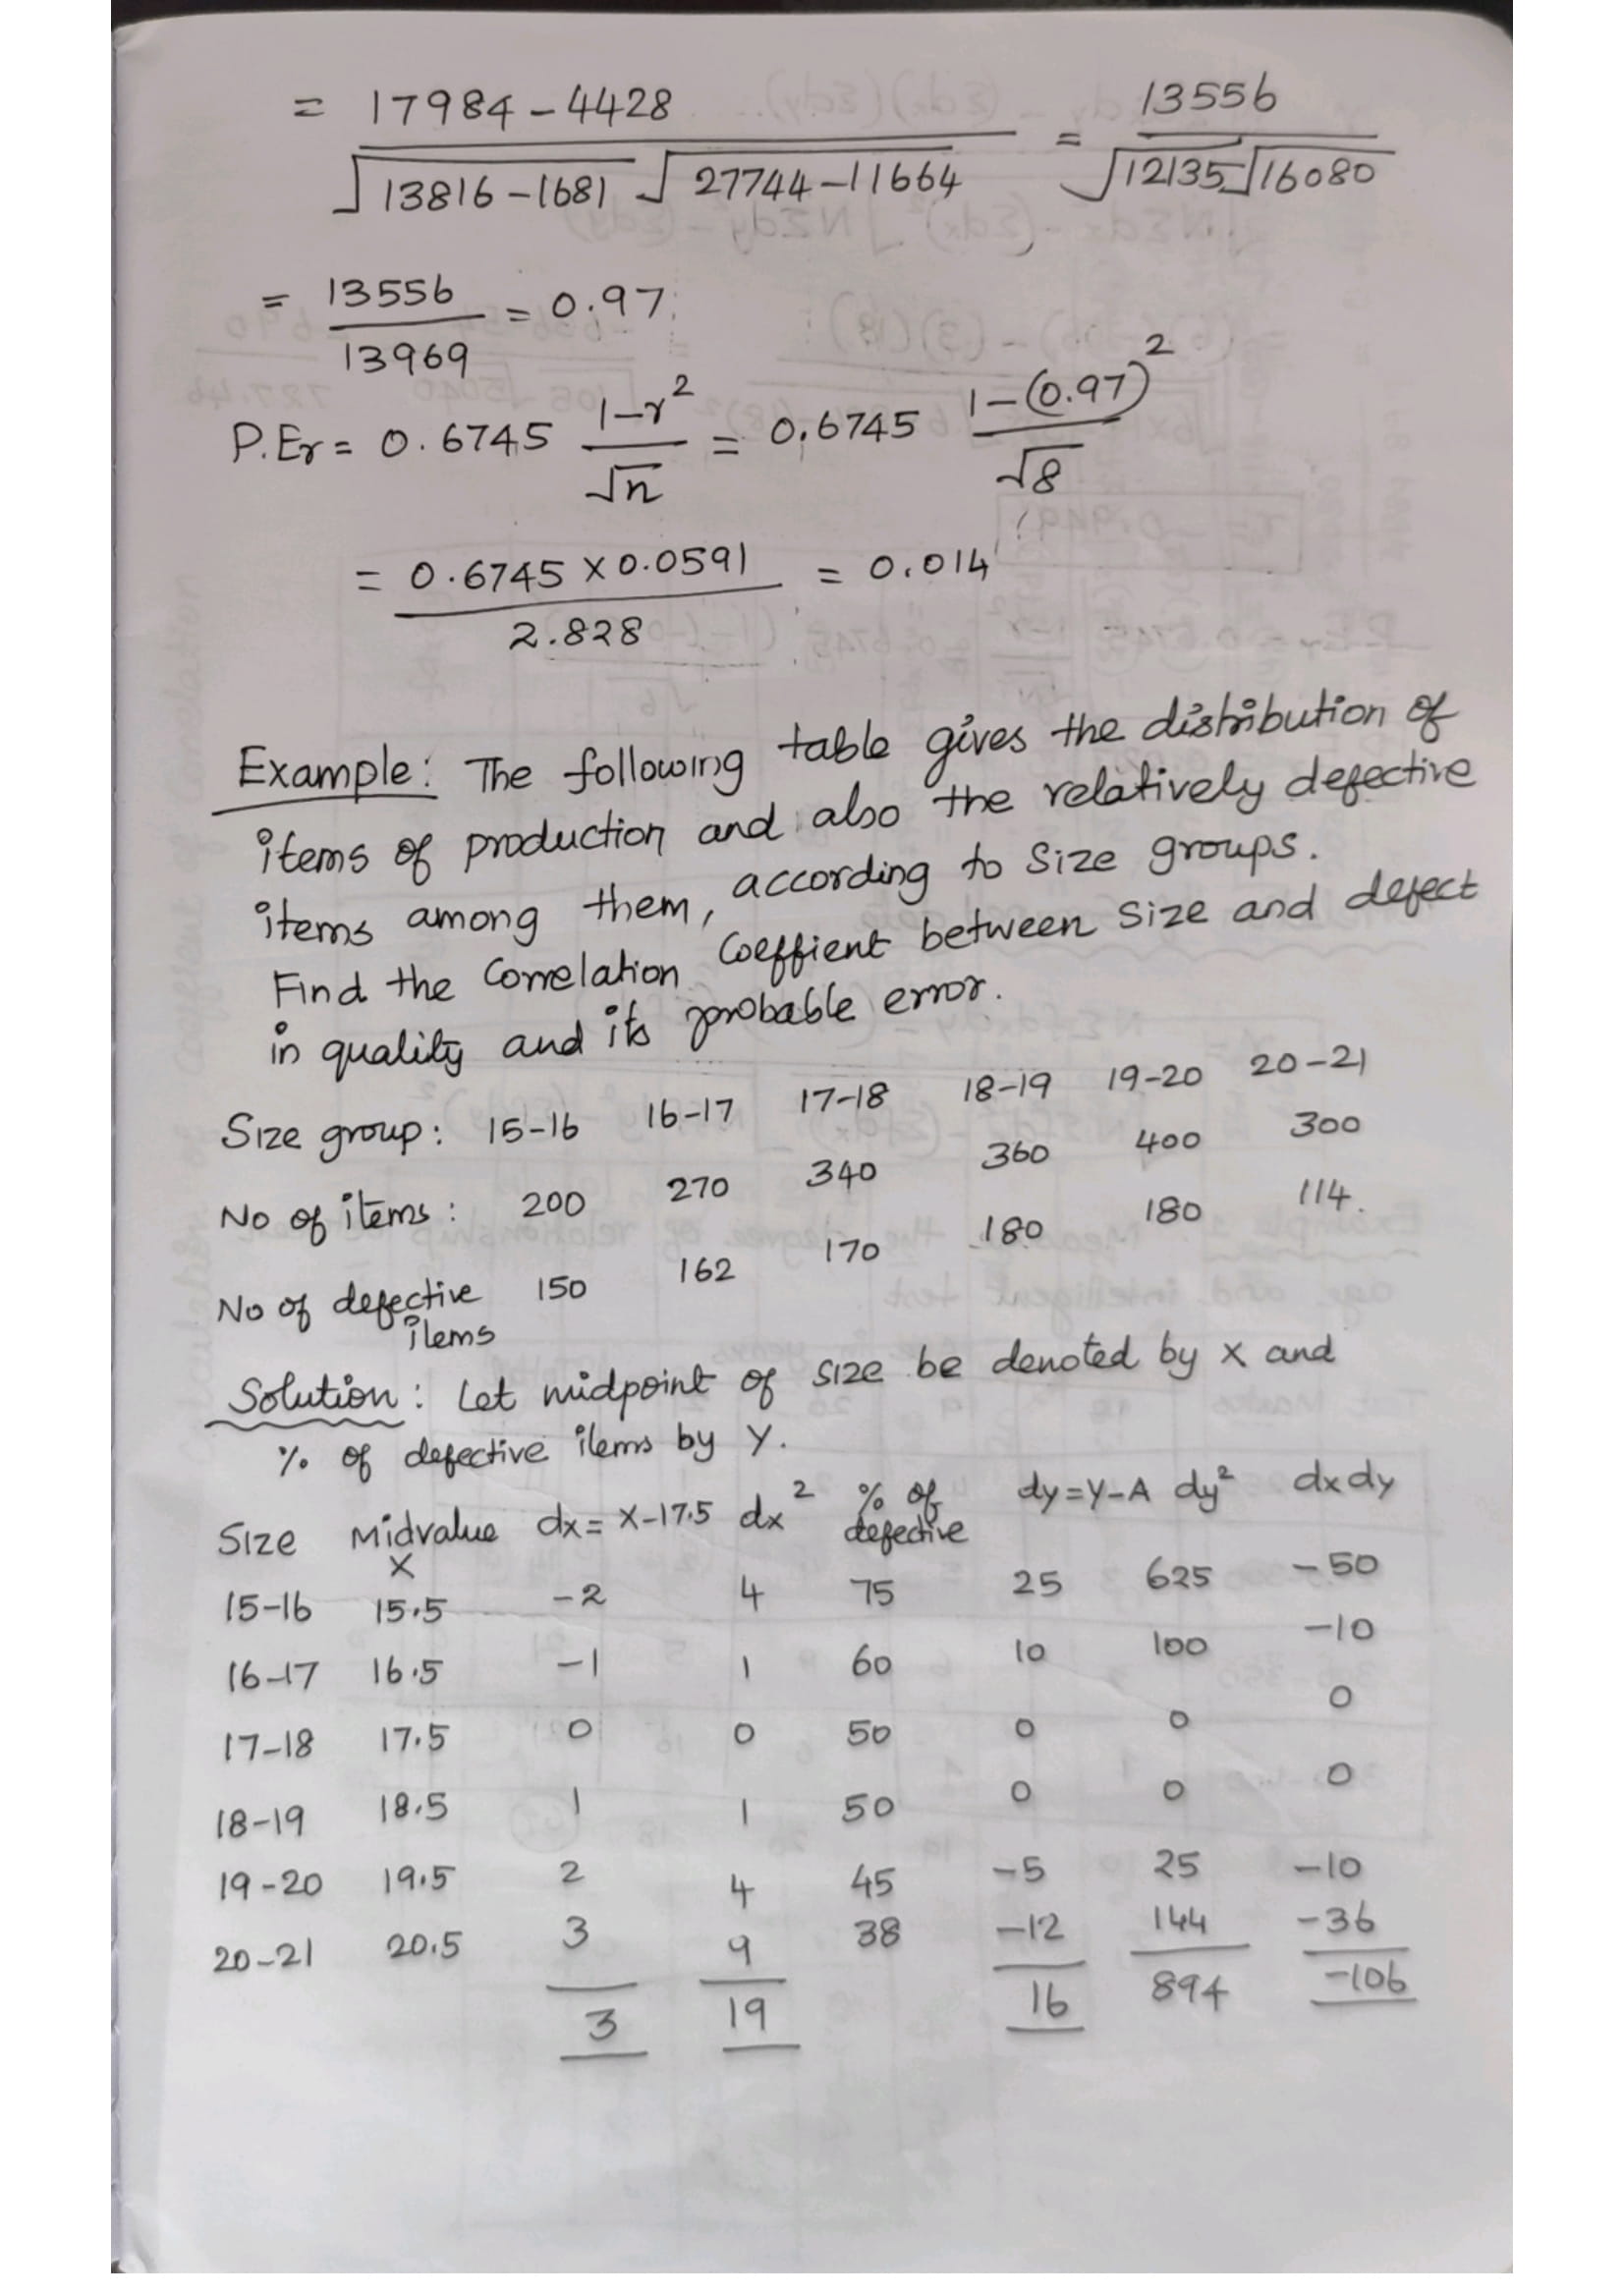 = 17984-4428 / √13816-1681 √27744-11664 = 13556 / √12135 √16080
= 13556 / 13969 = 0.97
P.Er = 0.6745 1-r² / √n = 0.6745 1-(0.97)² / √8
= 0.6745 x 0.0591 / 2.828 = 0.014
Example: The following table gives the distribution of
items of production and also the relatively defective
items among them, according to size groups.
Find the Correlation Coeffient between size and defect
in quality and its probable error.
Size group: 15-16 16-17 17-18 18-19 19-20 20-21
No of items: 200 270 340 360 400 300
No of defective 150 162 170 180 180 114.
items
Solution: Let midpoint of size be denoted by x and
% of defective items by y.
Size Midvalue dx= x-17.5 dx² % of dy=y-A dy² dxdy
x defective
15-16 15.5 -2 4 75 25 625 -50
16-17 16.5 -1 1 60 10 100 -10
17-18 17.5 0 0 50 0 0 0
18-19 18.5 1 1 50 0 0 0
19-20 19.5 2 4 45 -5 25 -10
20-21 20.5 3 9 38 -12 144 -36
3 19 16 894 -106